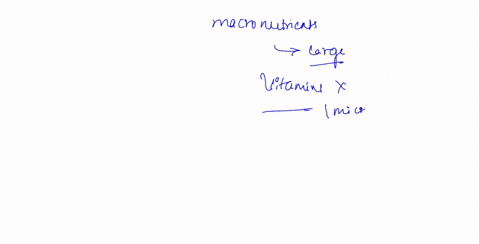 macronutrients
→ large
Vitamins X
(mic